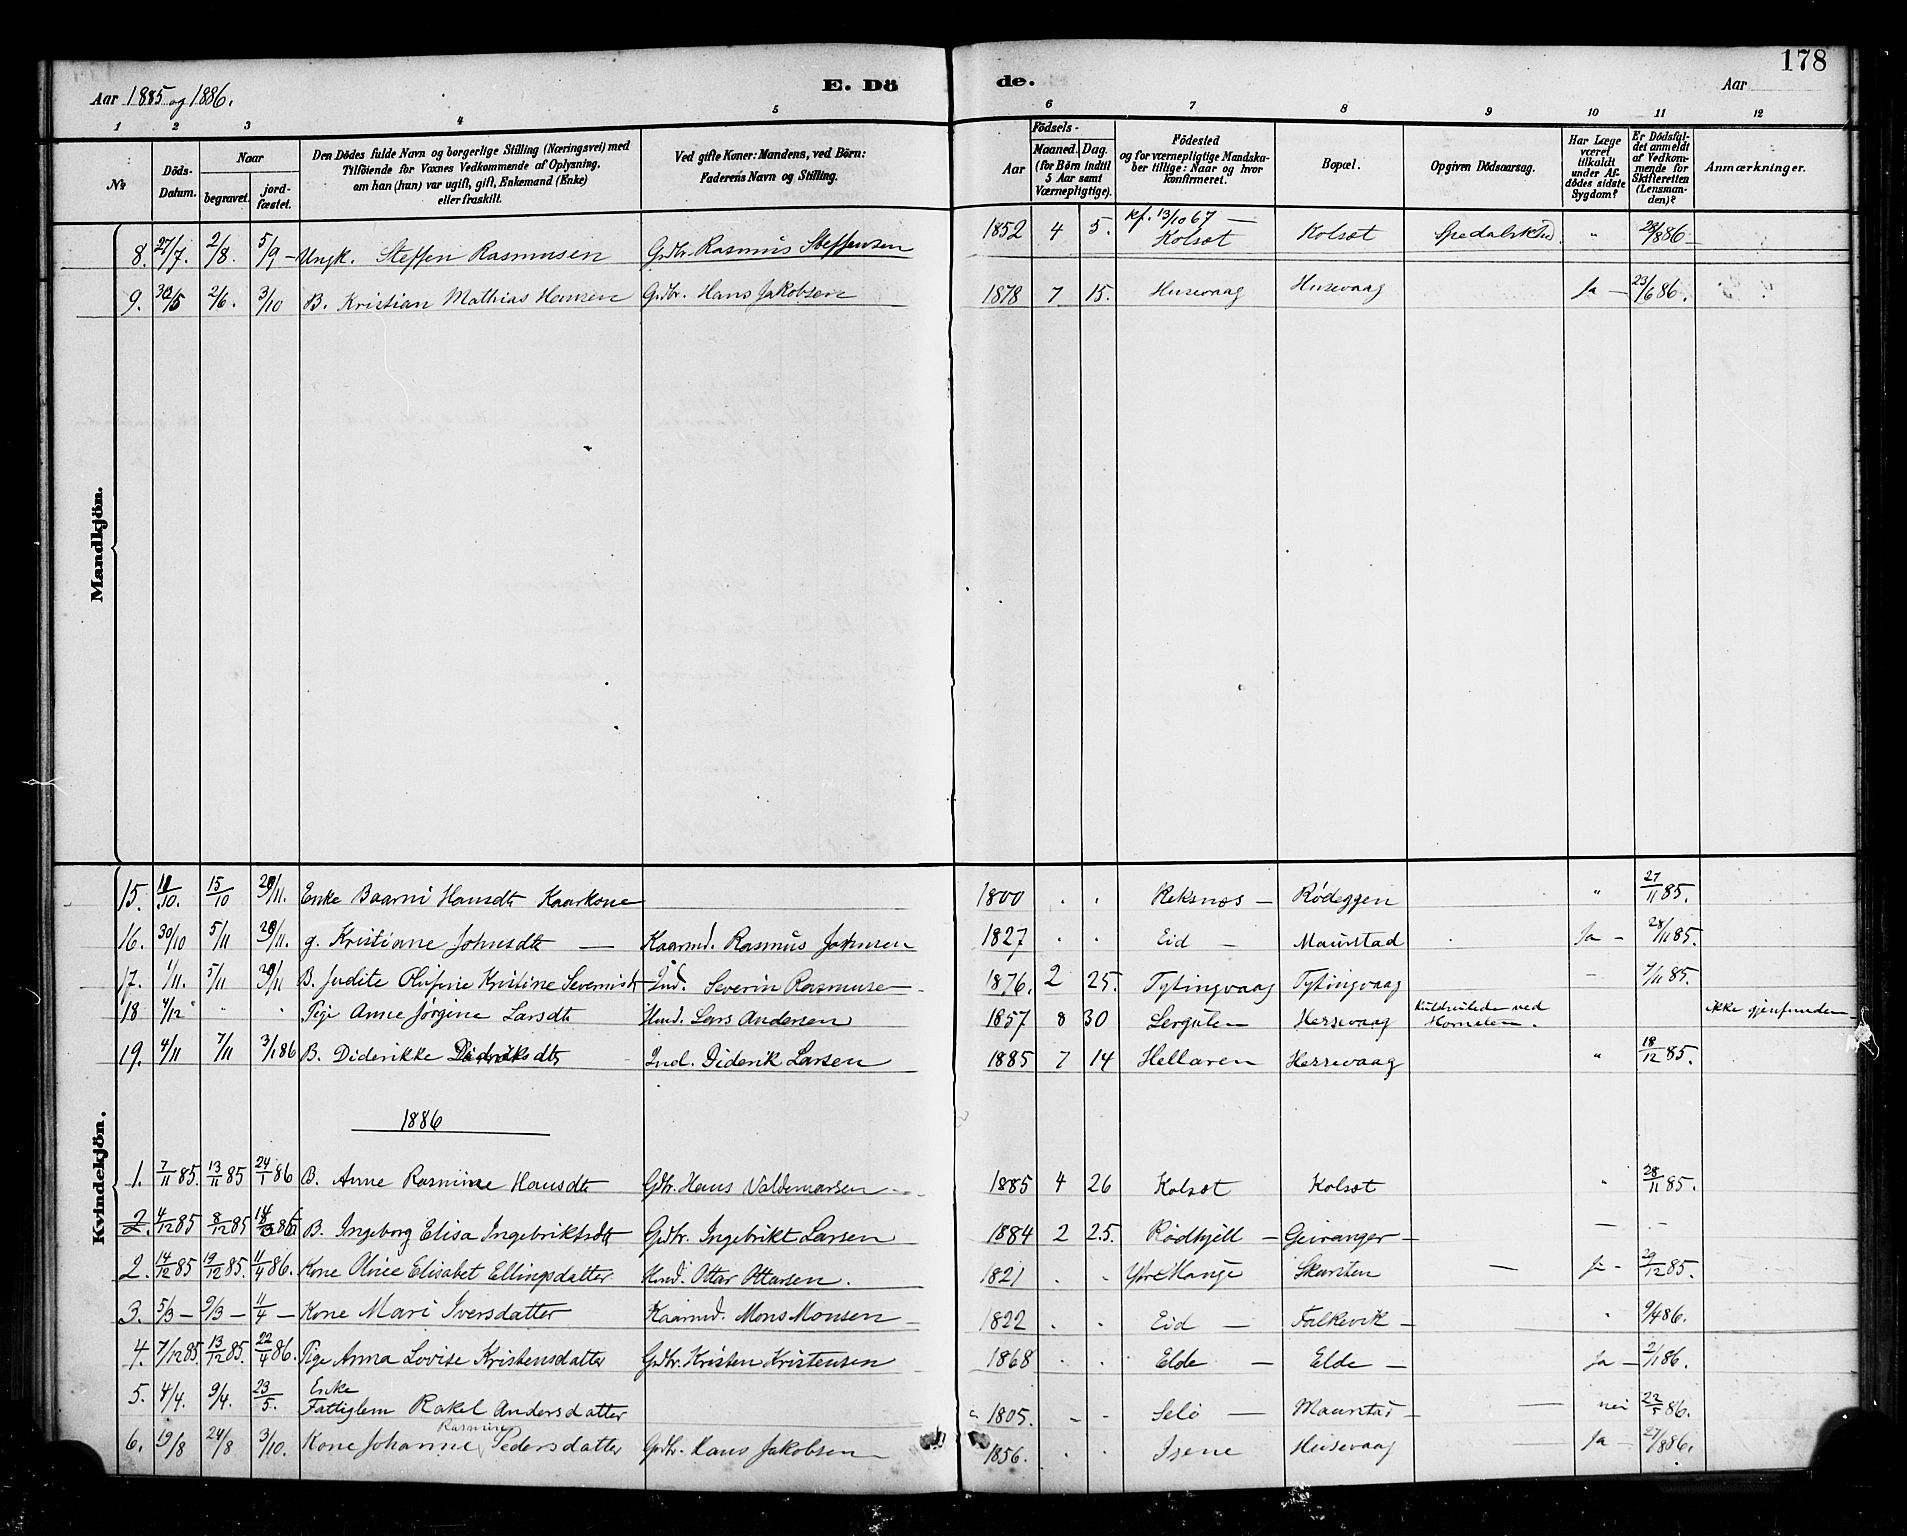 178
Aar 1885 og 1886.
E. Dö de.
Aar
1 2 3 4 5 6 7 8 9 10 11 12
№
Döds-Datum.
Naar
begravet.
jord-fæstet.
Den Dödes fulde Navn og borgerlige Stilling (Næringsvei) med
Tilföiende for Voxnes Vedkommende af Oplysning,
om han (hun) var ugift, gift, Enkemand (Enke)
eller fraskilt.
Ved gifte Koner: Mandens, ved Börn:
Faderens Navn og Stilling.
Födsels-
Aar
Maaned. Dag.
(for Börn indtil
5 Aar samt
Værnepligtige).
Födested
og for værnepligtige Mandska-
ber tillige: Naar og hvor
konfirmeret.
Bopæl.
Opgiven Dödsaarsag.
Har Læge
været
tilkaldt
under Af-
dödes sidste
Sygdom?
Er Dödsfal-
det anmeldt
af Vedkom-
mende for
Skifteretten
(Lensman-
den)?
Anmærkninger.
Mandkjön.
8. 27/7. 2/8. 5/9 - Ungk. Steffen Rasmusen Gdbr. Rasmus Steffensen 1852 4 5. kf. 13/10 67 — Kolset Kolset Spedalskhd. " 28/8 86
9. 30/5 2/6. 3/10 B. Kristian Mathias Hansen Gdbr. Hans Jakobsen 1878 7 15. Husevaag Husevaag Ja - 23/6 86.
Kvindekjön.
15. 11/10. 15/10 29/11. Enke Baarni Hansdt Kaarkone 1800 . . Reksnæs - Rødeggen " 27/11 85.
16. 30/10 5/11 29/11. g. Kristiane Johnsdt — Kaarmd. Rasmus Johnsen 1827 . . Eid - Maurstad Ja - 28/11 85.
17. 1/11. 5/11 29/11 B. Judite Olufine Kristine Severinsdt Ind. Severin Rasmusen 1876. 2 25. Tytingvaag Tytingvaag - 7/11 85.
18 4/12 " " Pige Anne Jørgine Larsdt Hmd. Lars Andersen 1857 8 30 Hessevaag ved Hornelen. ikke gjenfunden
19. 4/11 7/11 3/1 86 B. Diderikke Dideriksdt Ind. Diderik Larsen 1885 7 14 Hellaren Hessevaag " 18/12 85.
1886
1. 7/11 85. 13/11 85 24/1 86 B. Anne Rasmine Hansdt Gdbr. Hans Valdemarsen 1885 4 26 Kolset Kolset " 28/11 85.
2. 4/12 85 8/12 85 B. Ingeborg Elisa Ingebriktsdt Gdbr. Ingebrikt Larsen 1884 2 25. Rødhjell - Geiranger - — -
2. 14/12 85 19/12 85. 11/4 86. Kone Oline Elisabet Ellingsdatter Hmd. Ottar Ottarsen. 1821 . . Skarsten — Ja - 29/12 85.
3. 5/3 - 9/3 - 11/4 - Kone Mari Iversdatter Kaarmd. Mons Monsen 1822 . . Eid - Falkevik - " 9/4 86.
4. 7/12 85. 13/12 85. 22/4 86. Pige Anna Lovise Kristensdatter Gdbr. Kristen Kristensen 1868 . . Elde - Elde - Ja - 2/1 86.
5. 4/4. 9/4. 23/5. Enke Fattiglem Rakel Andersdatter 1805. - - Selø - Maurstad - — nei 22/5 86.
6. 19/8 24/8 3/10. Kone Johanne Rasmine Pedersdatter Gdbr. Hans Jakobsen 1856. . . Isene Husevaag Ja - 27/8 86.